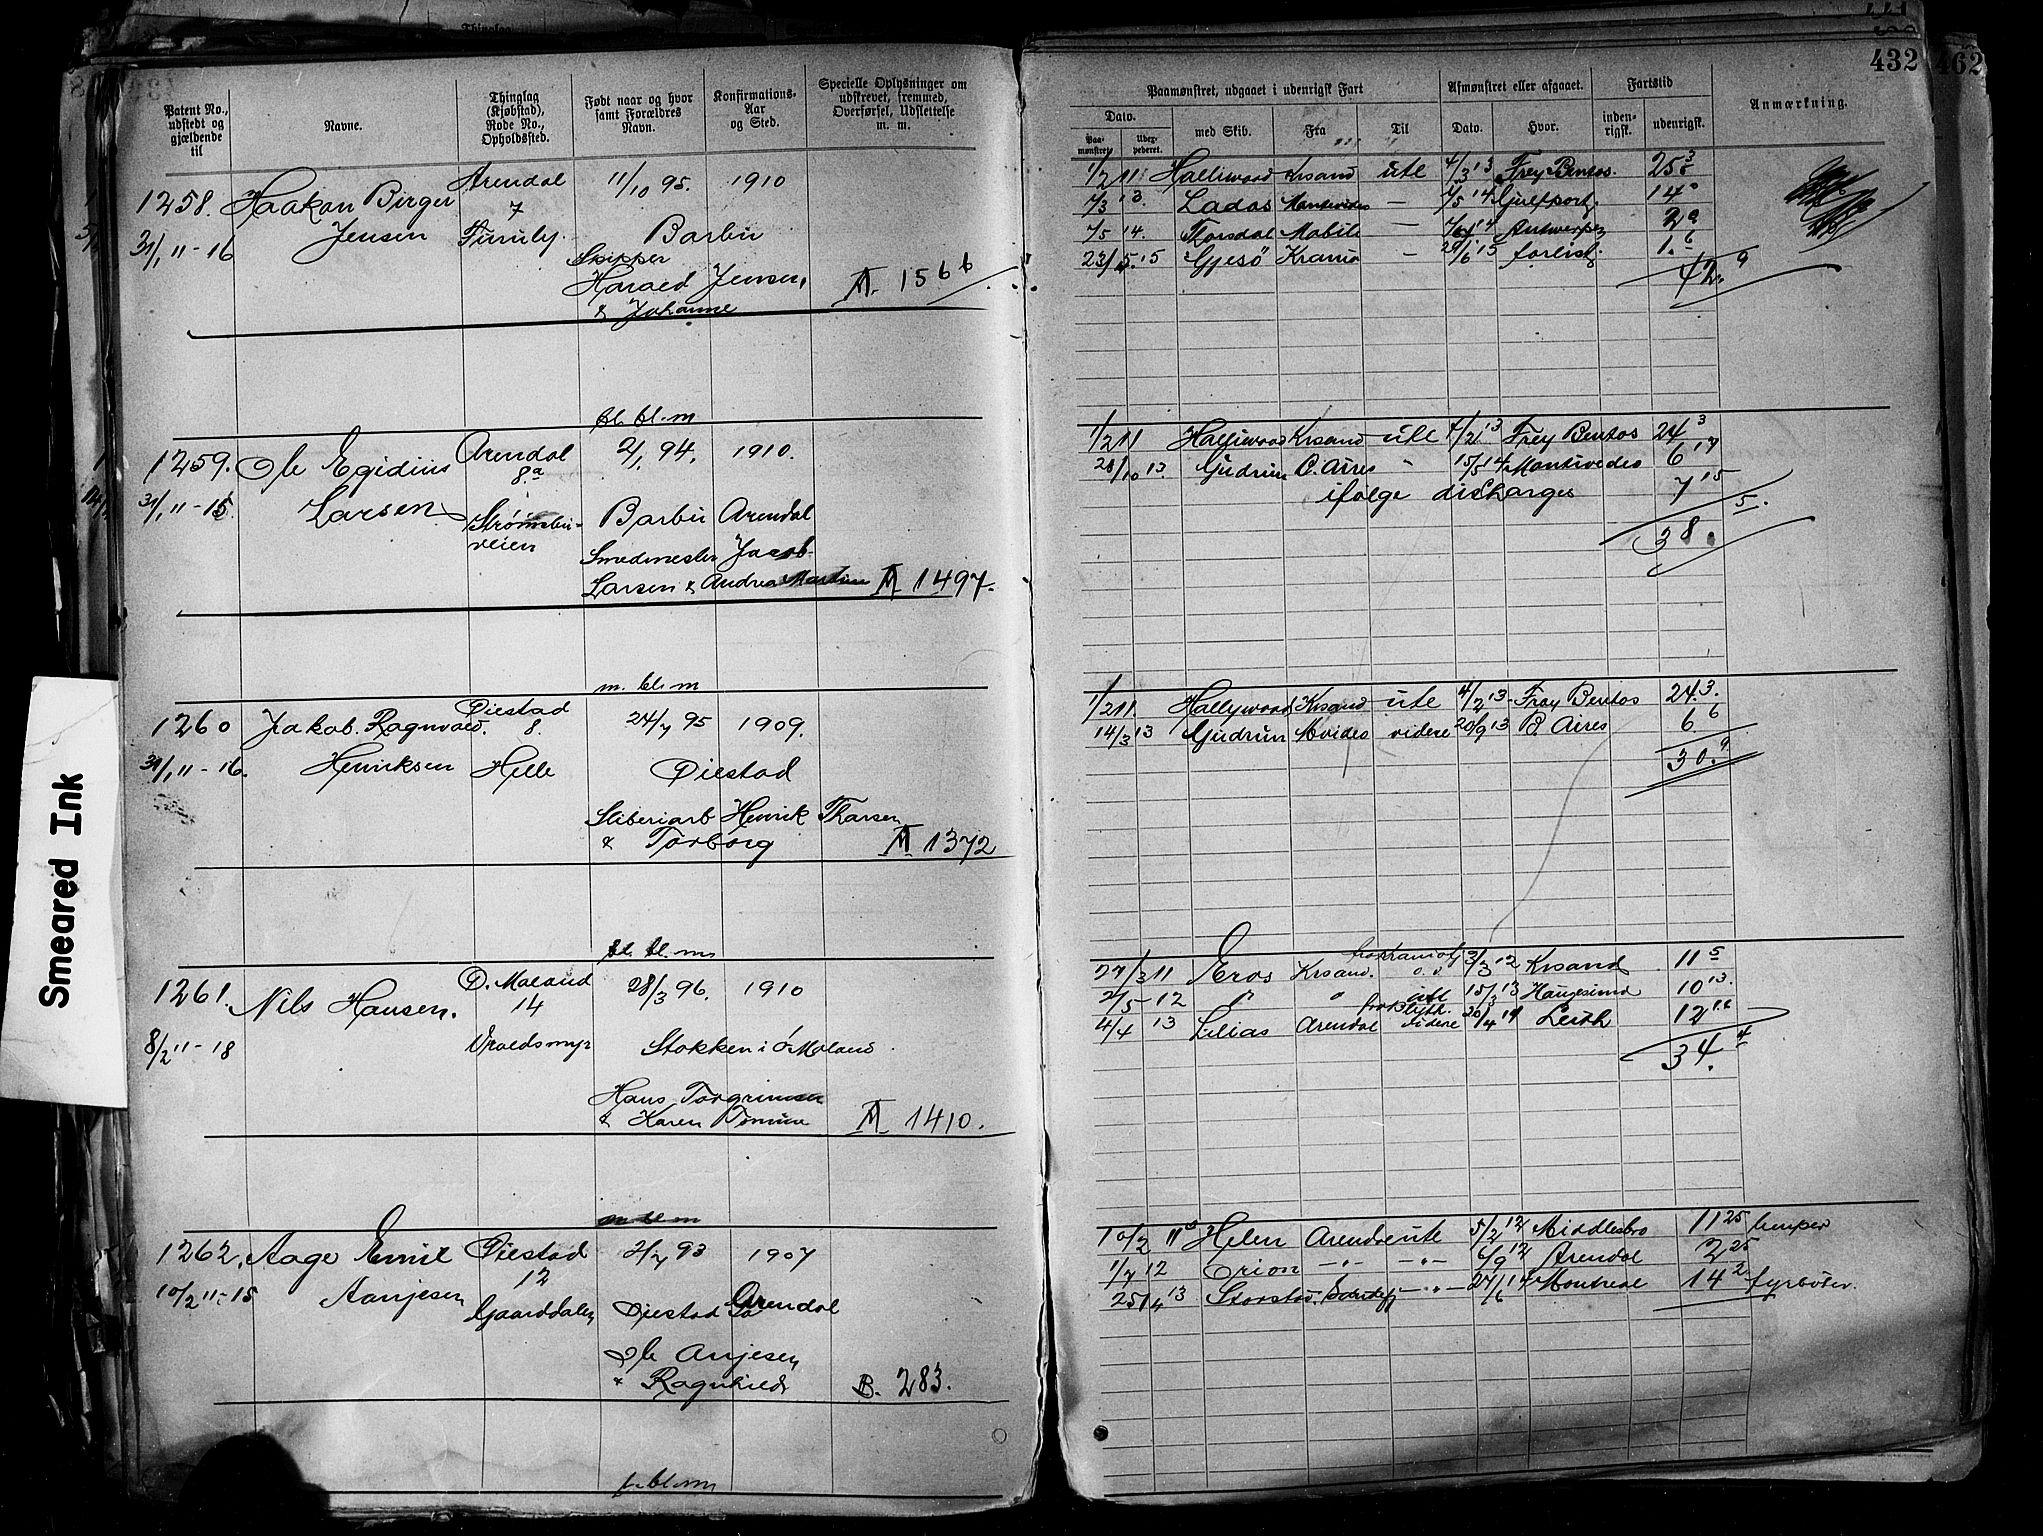 432
462
Patent No., udstedt og gjældende til
Navne.
Thinglag (Kjøbstad), Rode No., Opholdssted.
Født naar og hvor samt Forældres Navn.
Konfirmations-Aar og Sted.
Specielle Oplysninger om udskrevet, fremmed, Overførsel, Udslettelse m. m.
Paamønstret, udgaaet i udenrigsk Fart
Afmønstret eller afgaaet.
Fartstid
Anmærkning.
Dato.
med Skib.
Fra
Til
Dato.
Hvor.
inden-rigsk.
udenrigsk.
Paa-mønstret.
1258. Haakon Birger Arendal 11/10 95. 1910
7
31/1 11-16 Jensen Barbu
Skipper
Harald Jensen,
& Johanne
A. 1566
1/2 11 Halliwood Krsand ute 4/3 13 Frey Bentos. 25 3
7/3 13. Ladas Montevideo - 7/5 14 Gulfport. 14
7/5 14. Thorsdal Mobile - 7/6 14 Antwerpen 2
23/5 15 Gjesö - 29/6 15 forlist. 1. 6
42. 9
bl. bl. m
1259. Ole Egidius Arendal 2/1 94. 1910.
8a
31/1 11-15. Larsen Strømsbu- Barbu Arendal
veien
Smedmester Jacob
Larsen & Andrea Martine A 1497.
1/2 11 Halliwood Krsand ute 4/2 13 Frey Bentos 24 3
28/10 13. Gudrun B. Aires " 15/5 14 Montevideo 6 17
ifølge discharges 7 15
38. 5.
m. bl. m
1260 Jakob Ragnvald. Øiestad 24/7 95 1909.
8.
31/1 11-16. Henriksen Helle Øiestad
Sliberiarb Henrik Tharsen
& Torborg A 1372
1/2 11 Hallywood Krsand ute 4/2 13 Fray Bentos 24 3.
14/3 13 Gudrun Mvideo videre 20/9 13 B. Aires 6 6
30. 9
bl. bl. m
1261. Nils Hansen. Ø. Moland 28/3 96. 1910
14
8/2 11-18 Vraldsmyr Stokken i Ø Moland
Hans Torgrimsen
& Karen Tomine A 1410.
27/3 11 Eros Krsand. 3/3 12 Krsand 11 5
2/5 12 " " ute 15/3 13 Haugesund 10 13.
4/4 13 Lilias Arendal videre 20/4 14 Leith 12 16
34. 4
m bl m
1262. Aage Emil Øiestad 2/7 93 1907
12
10/2 11-15 Aanjesen Gaarddalen Øiestad Arendal
Ole Anjesen
& Ragnhild B. 283.
10/2 11 Helen Arendal ute 5/2 12 Middlesbro 11 25
1/7 12 Orion -"- -"- 6/9 12 Arendal 2 25
25/4 13 Storstad. -"- 27/6 14 Montreal 14 2 fyrbøter.
bl. m
Smeared Ink